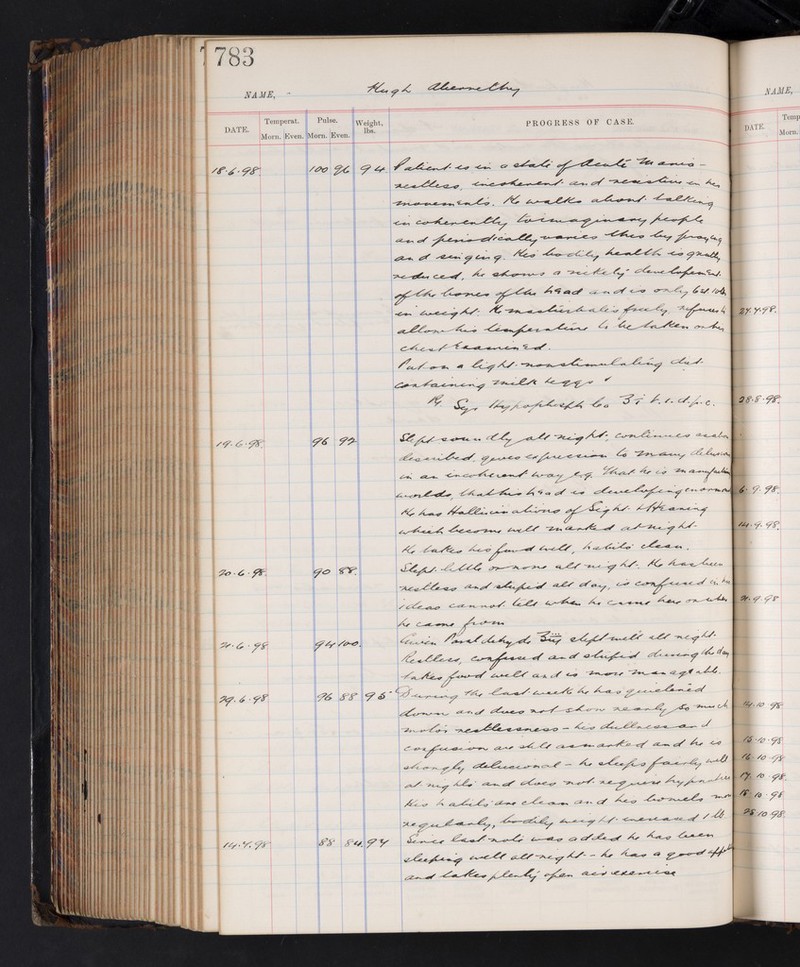 783
NAME, Hugh Abernethy
DATE. Temperat. Morn. Even. Pulse. Morn. Even. Weight, lbs. PROGRESS OF CASE.
18.6.98. 100 96 94 Patient is in a state of Acute Mania -
restless, incoherent and resistive in his
movements. He walks about talking
incoherently to imaginary people
and periodically varies this by praying
and singing. His bodily health is greatly
reduced, he shows a rickety development
of the bones of the head and is only 6st. 10lb
in weight. He masturbates freely, refuses to
allow his temperature to be taken or his
chest Examined.
Put on a light non stimulating diet
containing milk & eggs
Rx Syr Hypophosph Co t.i.d. p.c.
19.6.98. 96 92 Slept soundly all night, continues as
described, gives expression to many delusions
in an incoherent way e.g. that he is
worlds, that his head is developing
He has Hallucinations of Sight & Hearing
which become well marked at night.
He takes his food well, habits clean.
20.6.98. 90 88. Slept little or none all night. He has been
restless and stupid all day, is confused in his
ideas cannot tell when he came here or where
he came from
21.6.98 94 100. Given Paraldehyde slept well all night.
Restless, confused and stupid during the day
takes food well and is more manageable.
29.6.98 96 88 95 During the last week he has quietened
down and does not show nearly so much
motor restlessness - his dullness and
confusion are still as marked and he is
strongly delusional - he sleeps fairly well
at nights and does not require hypnotics
His habits are clean and his bowels move
regularly, bodily weight increased 1 lb.
14.7.98 88 84 94 Since last note was added he has been
sleeping well all night - he has a good
and takes plenty open air exercise
NAME,
DATE. Temp
Morn.
27.7.98.
28.8.98.
6.9.98.
14.9.98.
21.9.98
14.10.98
15.10.98
16.10.98
17.10.98.
18.10.98
25.10.98.